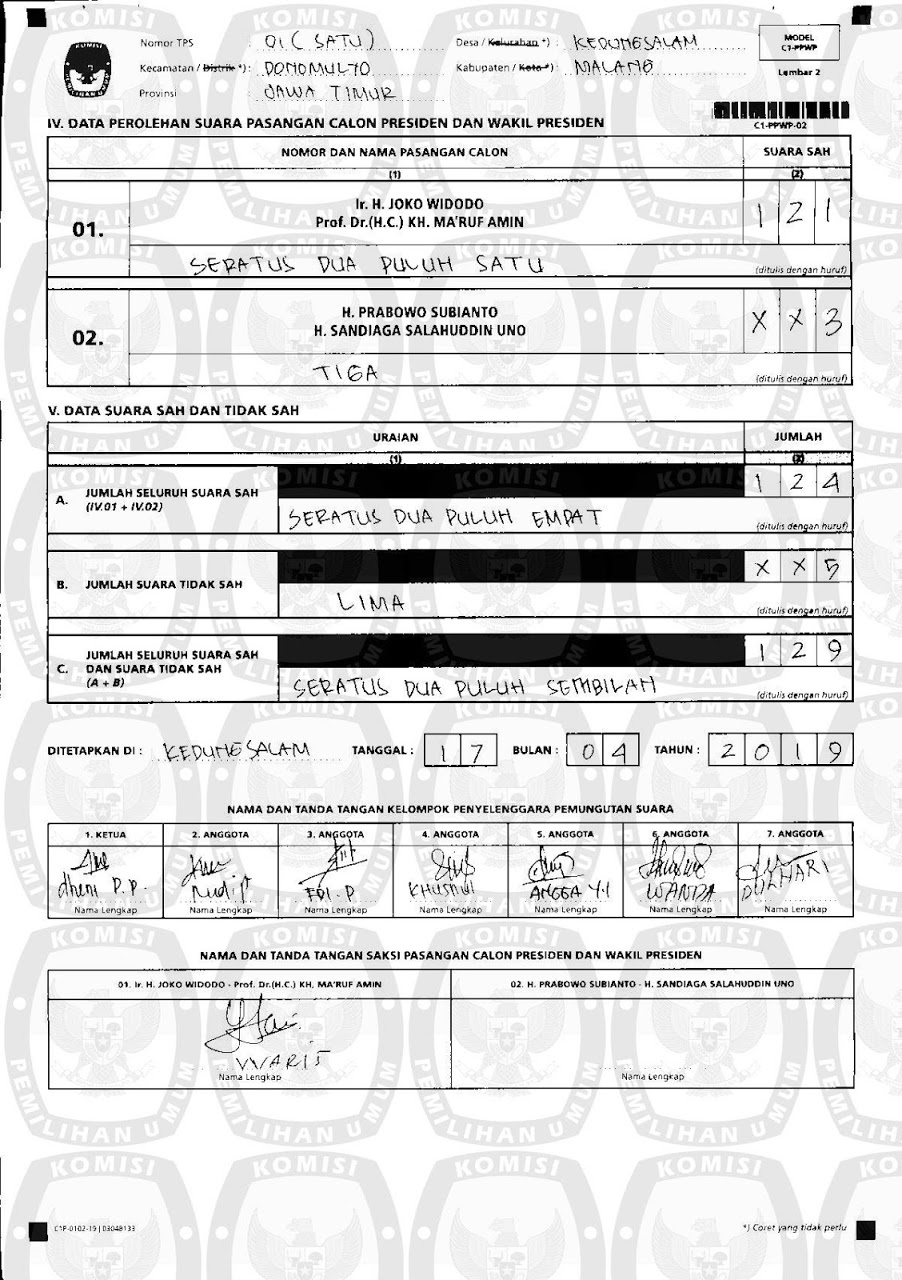 Nomor TPS : 01 ( SATU ) Desa / Kelurahan *) : KEDUNGSALAM
Kecamatan / Distrik *) : DONOMULYO Kabupaten / Kota *) : MALANG
Provinsi : JAWA TIMUR
MODEL
C1-PPWP
Lembar 2
C1-PPWP-02
IV. DATA PEROLEHAN SUARA PASANGAN CALON PRESIDEN DAN WAKIL PRESIDEN
NOMOR DAN NAMA PASANGAN CALON SUARA SAH
(1) (2)
01. Ir. H. JOKO WIDODO
Prof. Dr.(H.C.) KH. MA'RUF AMIN 1 2 1
SERATUS DUA PULUH SATU
(ditulis dengan huruf)
02. H. PRABOWO SUBIANTO
H. SANDIAGA SALAHUDDIN UNO X X 3
TIGA
(ditulis dengan huruf)
V. DATA SUARA SAH DAN TIDAK SAH
URAIAN JUMLAH
(1) (2)
A. JUMLAH SELURUH SUARA SAH
(IV.01 + IV.02) 1 2 4
SERATUS DUA PULUH EMPAT
(ditulis dengan huruf)
B. JUMLAH SUARA TIDAK SAH X X 5
LIMA
(ditulis dengan huruf)
C. JUMLAH SELURUH SUARA SAH
DAN SUARA TIDAK SAH
(A + B) 1 2 9
SERATUS DUA PULUH SEMBILAN
(ditulis dengan huruf)
DITETAPKAN DI : KEDUNGSALAM TANGGAL : 1 7 BULAN : 0 4 TAHUN : 2 0 1 9
NAMA DAN TANDA TANGAN KELOMPOK PENYELENGGARA PEMUNGUTAN SUARA
1. KETUA 2. ANGGOTA 3. ANGGOTA 4. ANGGOTA 5. ANGGOTA 6. ANGGOTA 7. ANGGOTA
dheni P.P. EDI. P KHUSNUL ANGGA Y.I WANDA
Nama Lengkap Nama Lengkap Nama Lengkap Nama Lengkap Nama Lengkap Nama Lengkap Nama Lengkap
NAMA DAN TANDA TANGAN SAKSI PASANGAN CALON PRESIDEN DAN WAKIL PRESIDEN
01. Ir. H. JOKO WIDODO - Prof. Dr.(H.C.) KH. MA'RUF AMIN 02. H. PRABOWO SUBIANTO - H. SANDIAGA SALAHUDDIN UNO
WARIS
Nama Lengkap Nama Lengkap
C1P-0102-19 | 03048133 *) Coret yang tidak perlu